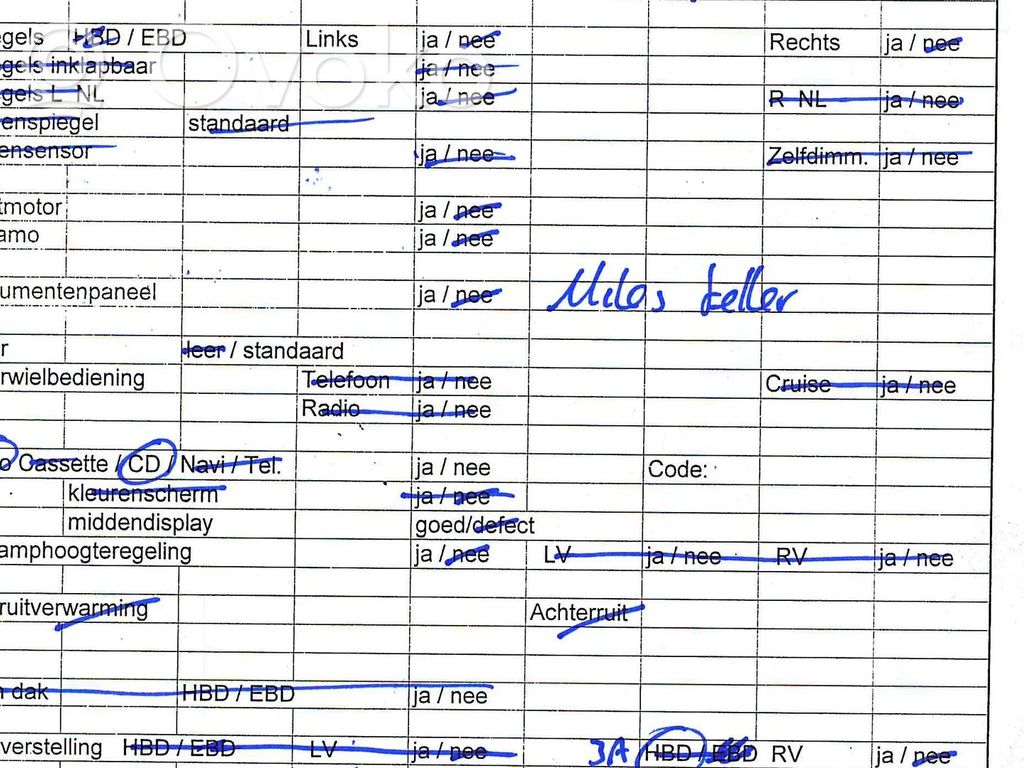 egels HBD / EBD Links ja / nee Rechts ja / nee
egels inklapbaar ja / nee
egels L NL ja / nee R NL ja / nee
enspiegel standaard
ensensor ja / nee Zelfdimm. ja / nee
tmotor ja / nee
amo ja / nee
umentenpaneel ja / nee Milos teller
r leer / standaard
rwielbediening Telefoon ja / nee Cruise ja / nee
Radio ja / nee
o Cassette / CD / Navi / Tel. ja / nee Code:
kleurenscherm ja / nee
middendisplay goed/defect
amphoogteregeling ja / nee LV ja / nee RV ja / nee
ruitverwarming Achterruit
n dak HBD / EBD ja / nee
verstelling HBD / EBD LV ja / nee 3A HBD / EBD RV ja / nee
Ovoko